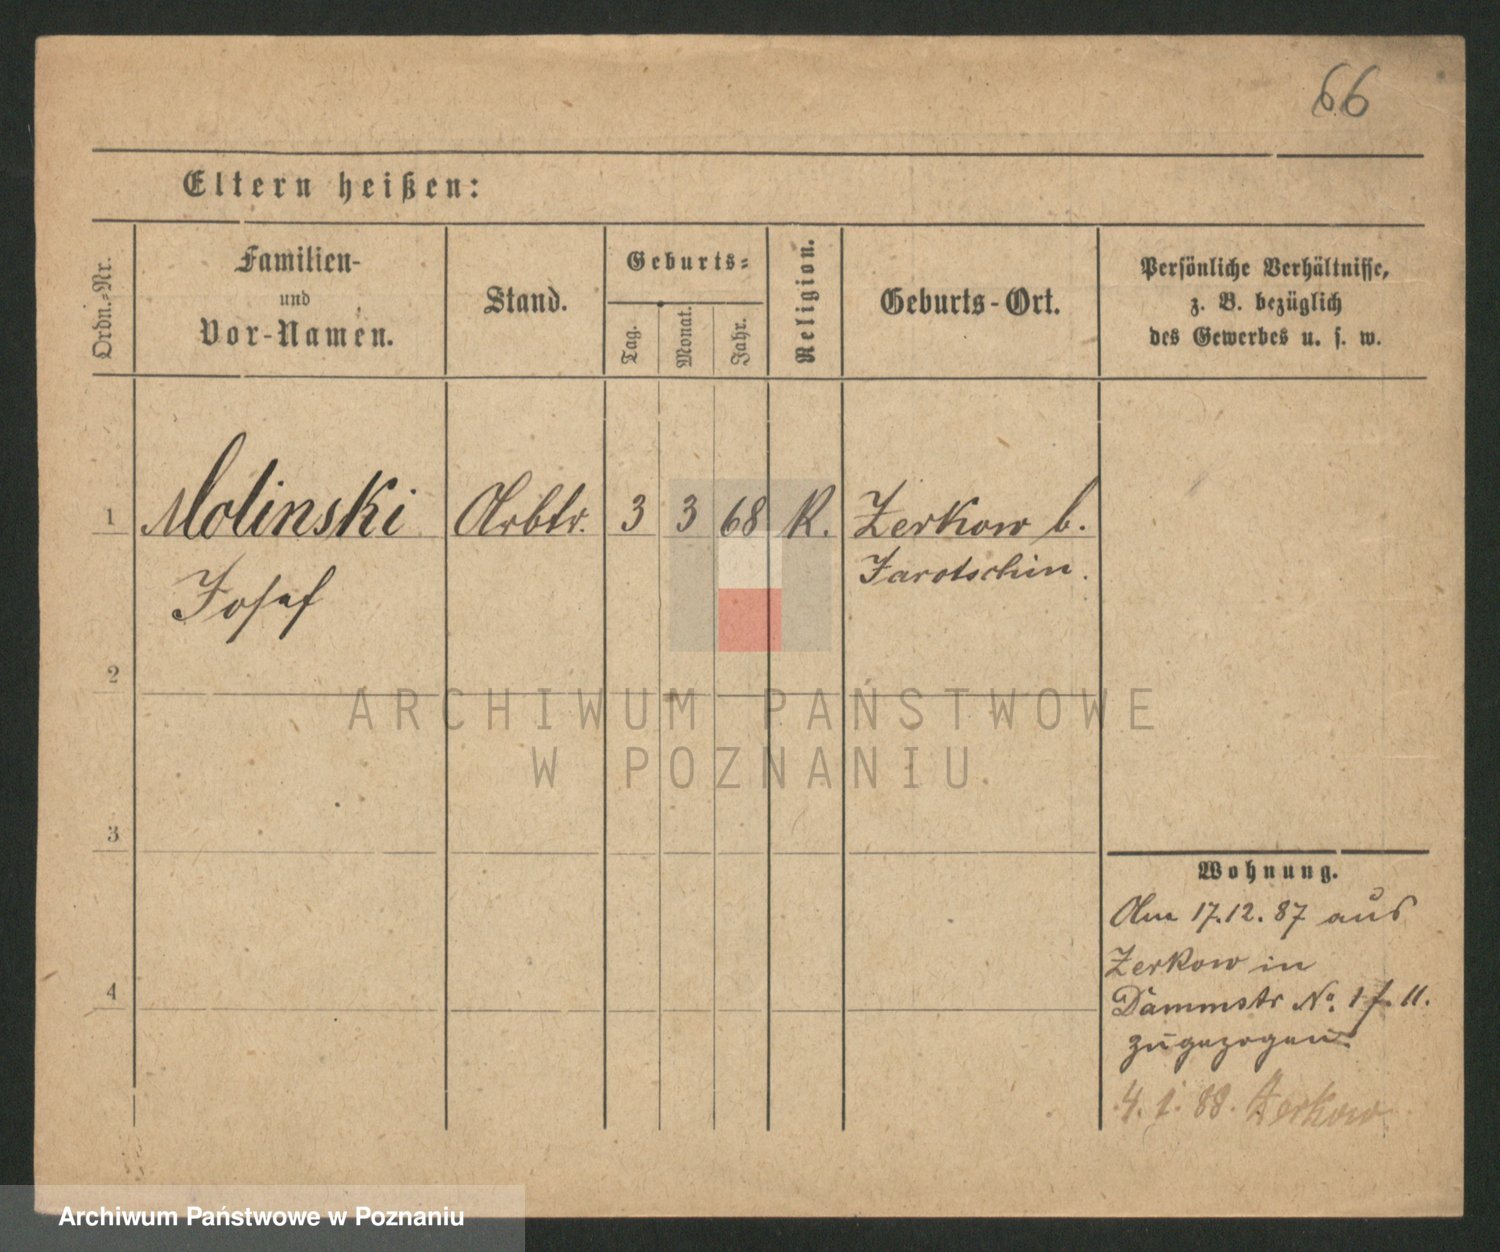 66
Eltern heißen:
Ordn.-Nr.
Familien-
und
Vor-Namen.
Stand.
Geburts-
Tag.
Monat.
Jahr.
Religion.
Geburts-Ort.
Persönliche Verhältnisse,
z. B. bezüglich
des Gewerbes u. s. w.
1 Molinski Arbtr. 3 3 68 K. Zerkow b.
Josef Jarotschin.
2
3
4
Wohnung.
Am 17.12.87 aus
Zerkow in
Dammstr No. 1 f. 11.
zugezogen.
4. 1. 88. Zerkow
ARCHIWUM PAŃSTWOWE
W POZNANIU
Archiwum Państwowe w Poznaniu